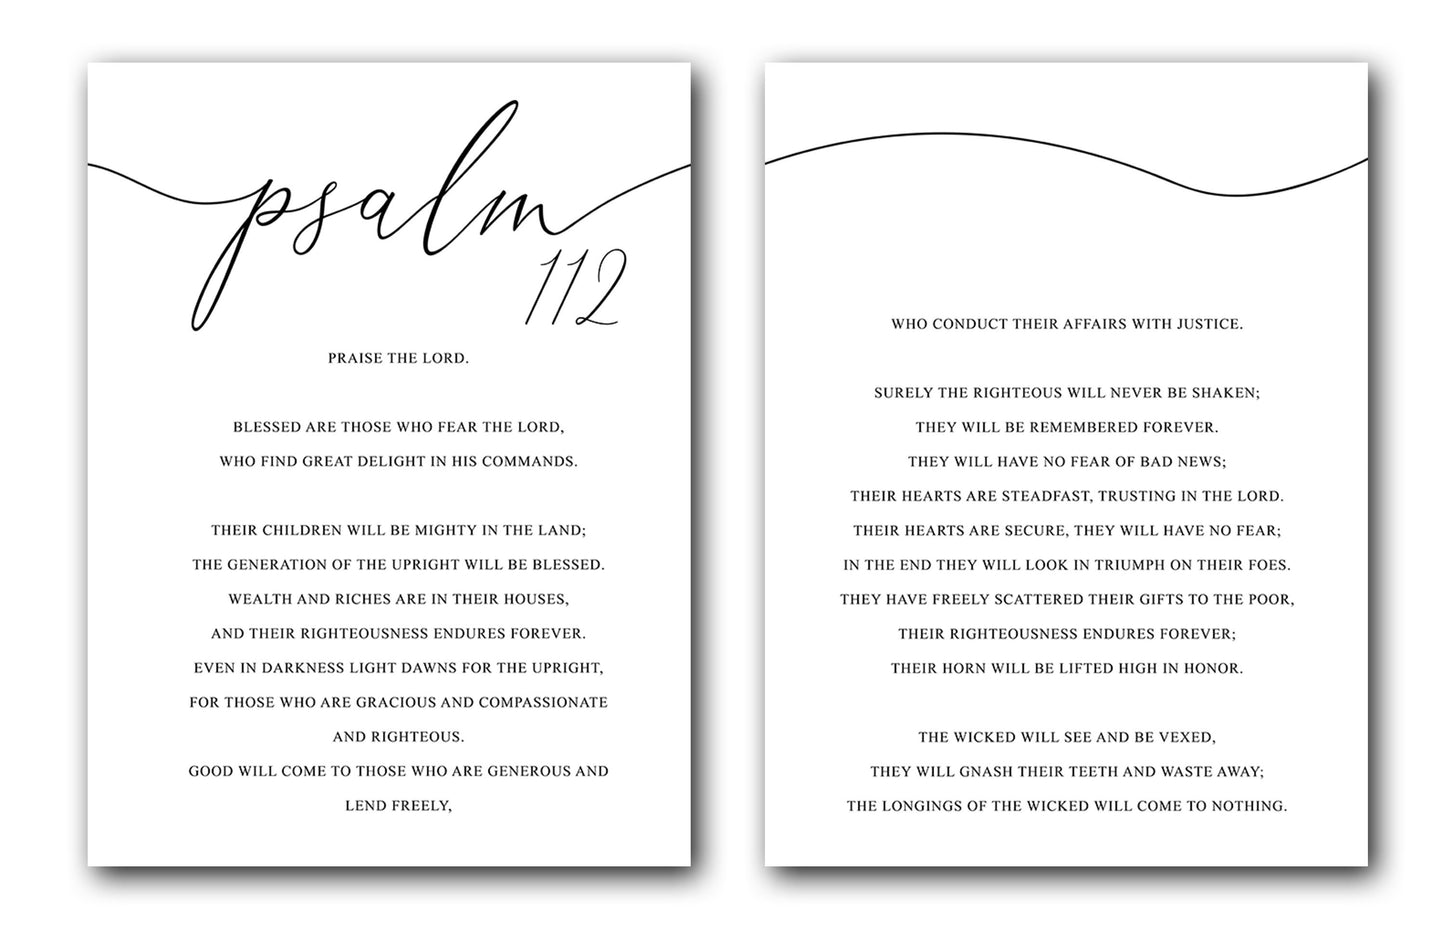 psalm
112
PRAISE THE LORD.
BLESSED ARE THOSE WHO FEAR THE LORD,
WHO FIND GREAT DELIGHT IN HIS COMMANDS.
THEIR CHILDREN WILL BE MIGHTY IN THE LAND;
THE GENERATION OF THE UPRIGHT WILL BE BLESSED.
WEALTH AND RICHES ARE IN THEIR HOUSES,
AND THEIR RIGHTEOUSNESS ENDURES FOREVER.
EVEN IN DARKNESS LIGHT DAWNS FOR THE UPRIGHT,
FOR THOSE WHO ARE GRACIOUS AND COMPASSIONATE
AND RIGHTEOUS.
GOOD WILL COME TO THOSE WHO ARE GENEROUS AND
LEND FREELY,
WHO CONDUCT THEIR AFFAIRS WITH JUSTICE.
SURELY THE RIGHTEOUS WILL NEVER BE SHAKEN;
THEY WILL BE REMEMBERED FOREVER.
THEY WILL HAVE NO FEAR OF BAD NEWS;
THEIR HEARTS ARE STEADFAST, TRUSTING IN THE LORD.
THEIR HEARTS ARE SECURE, THEY WILL HAVE NO FEAR;
IN THE END THEY WILL LOOK IN TRIUMPH ON THEIR FOES.
THEY HAVE FREELY SCATTERED THEIR GIFTS TO THE POOR,
THEIR RIGHTEOUSNESS ENDURES FOREVER;
THEIR HORN WILL BE LIFTED HIGH IN HONOR.
THE WICKED WILL SEE AND BE VEXED,
THEY WILL GNASH THEIR TEETH AND WASTE AWAY;
THE LONGINGS OF THE WICKED WILL COME TO NOTHING.